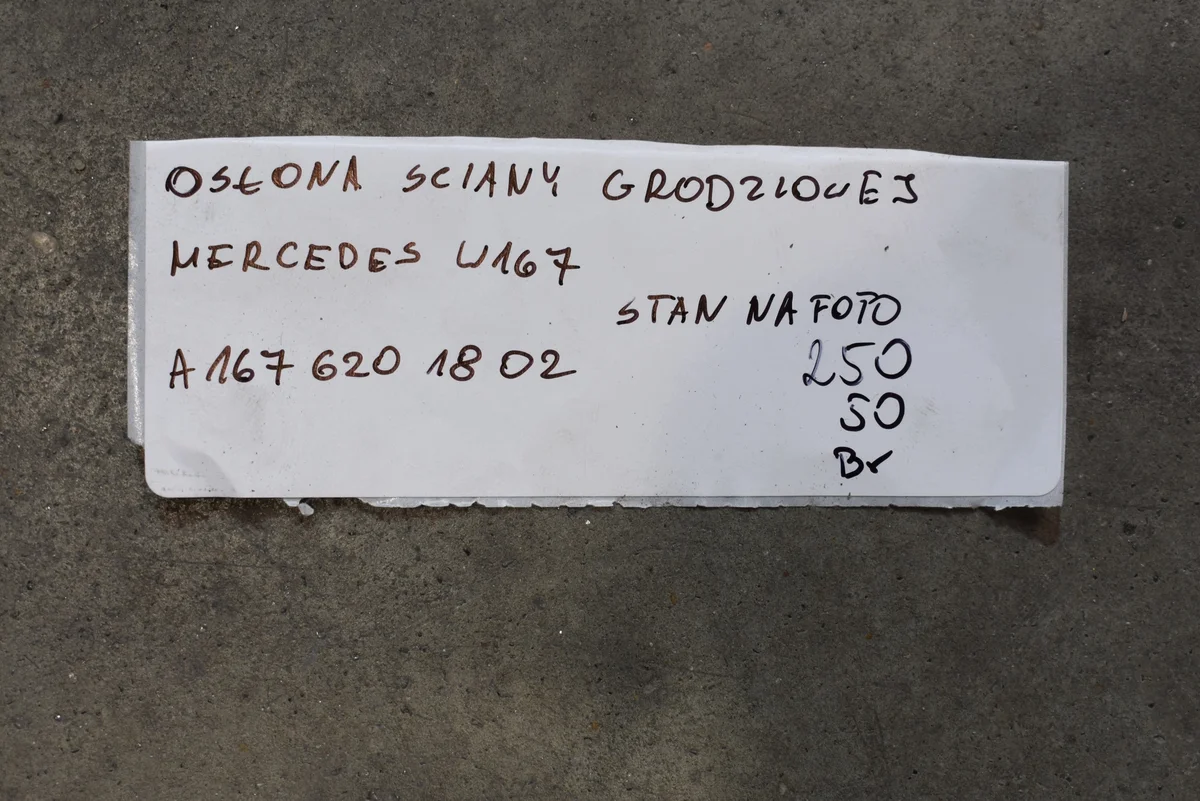 OSŁONA SCIANY GRODZIOWEJ
MERCEDES W167
STAN NA FOTO
A 167 620 18 02
250
50
Br